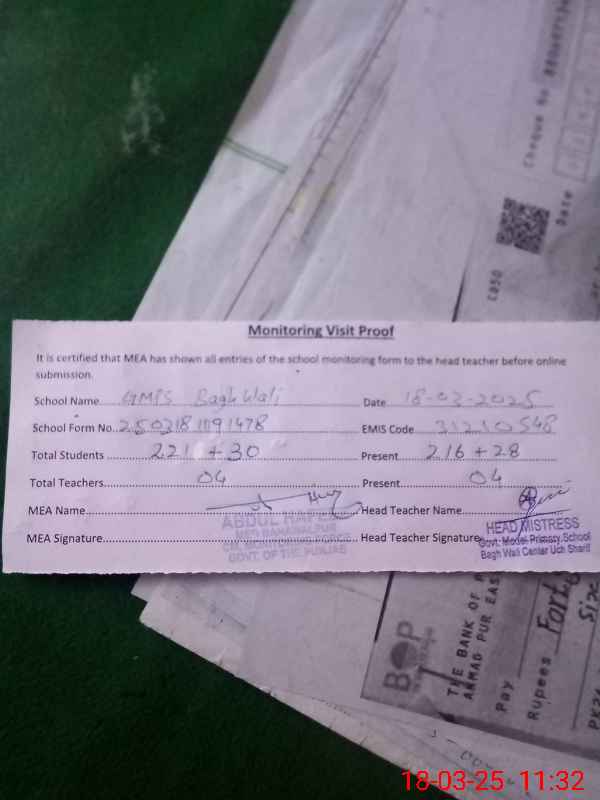 Cheque No
Date
CASO
Monitoring Visit Proof
It is certified that MEA has shown all entries of the school monitoring form to the head teacher before online
submission.
School Name GMPS Bagh Wali Date 18-03-2025
School Form No. EMIS Code 31210548
Total Students 221 + 30 Present 216 + 28
Total Teachers 04 Present 04
MEA Name Head Teacher Name
MEA Signature Head Teacher Signature
ABDUL
CM, MONITORING FORCE
GOVT. OF THE PUNJAB
HEAD MISTRESS
Govt. Model Primary School
Bagh Wali Center Uch Sharif
BOP
THE BANK OF
AHMAD PUR EAS
Pay
Rupees
18-03-25 11:32